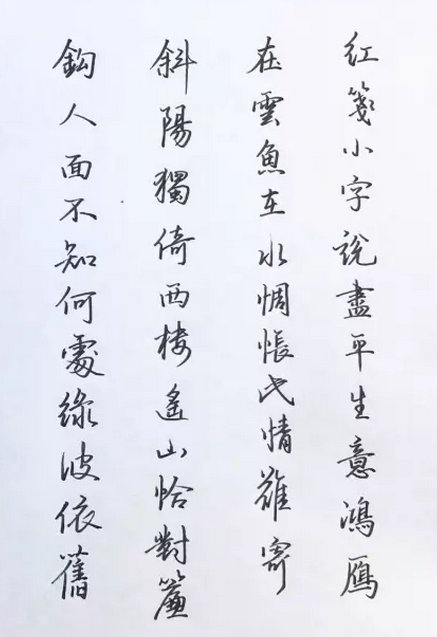 紅箋小字說盡平生意鴻鴈
在雲魚在水惆悵此情難寄
斜陽獨倚西楼遙山恰對簾
鈎人面不知何處綠波依舊